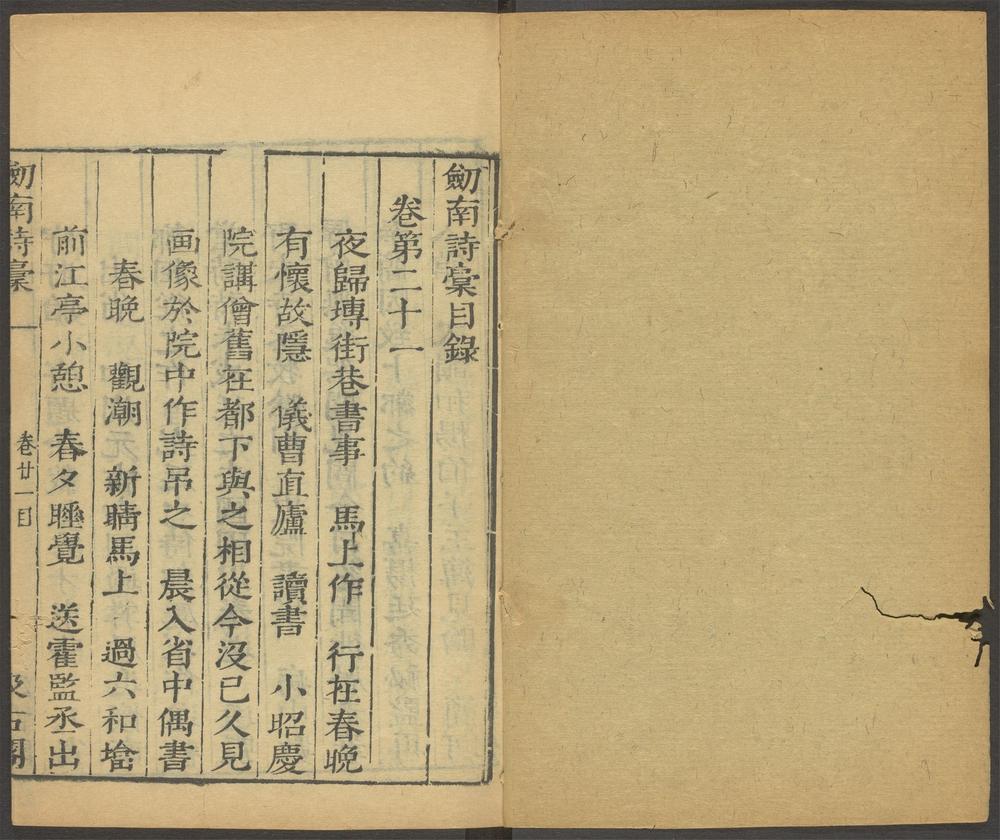 劒南詩稾目錄
卷第二十一
夜歸塼街巷書事 馬上作 行在春晚
有懷故隱 儀曹直廬 讀書 小昭慶
院講僧舊在都下與之相從今沒已久見
画像於院中作詩吊之 晨入省中偶書
春晚 觀潮 新晴馬上 過六和墖
前江亭小憩 春夕睡覺 送霍監丞出
劒南詩稾
卷廿一目
汲古閣